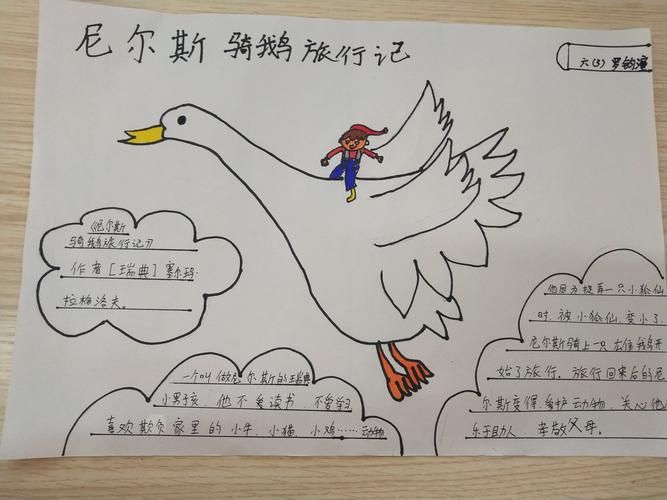 尼尔斯骑鹅旅行记
六(3) 罗钧
《尼尔斯
骑鹅旅行记》
作者[瑞典]塞尔玛·
拉格洛夫。
一个叫做尼尔斯的瑞典
小男孩，他不爱读书，不爱学习
喜欢欺负家里的小牛、小猫、小鸡……动物
他因为捉弄一只小狐仙
时，被小狐仙变小了.
尼尔斯骑上一只在雄鹅开
始了旅行。旅行回来后的尼
尔斯变得，爱护动物，关心他
乐于助人，孝敬父母。